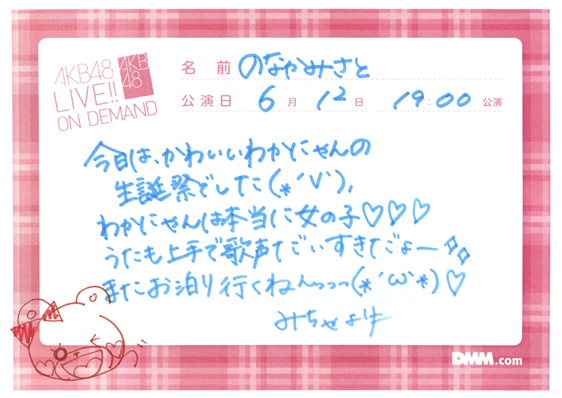 AKB48
LIVE!!
ON DEMAND
AKB
48
名 前 のなかみさと
公演日 6月12日 19:00 公演
今日は、かわいいわかにゃんの
生誕祭でした(*´V`),
わかにゃんは本当に女の子♡♡♡
うたも上手で歌声てごいすきだよー✧✧
またお泊り行くねんっっっ(*´ω`*)♡
みちゃより
DMM.com